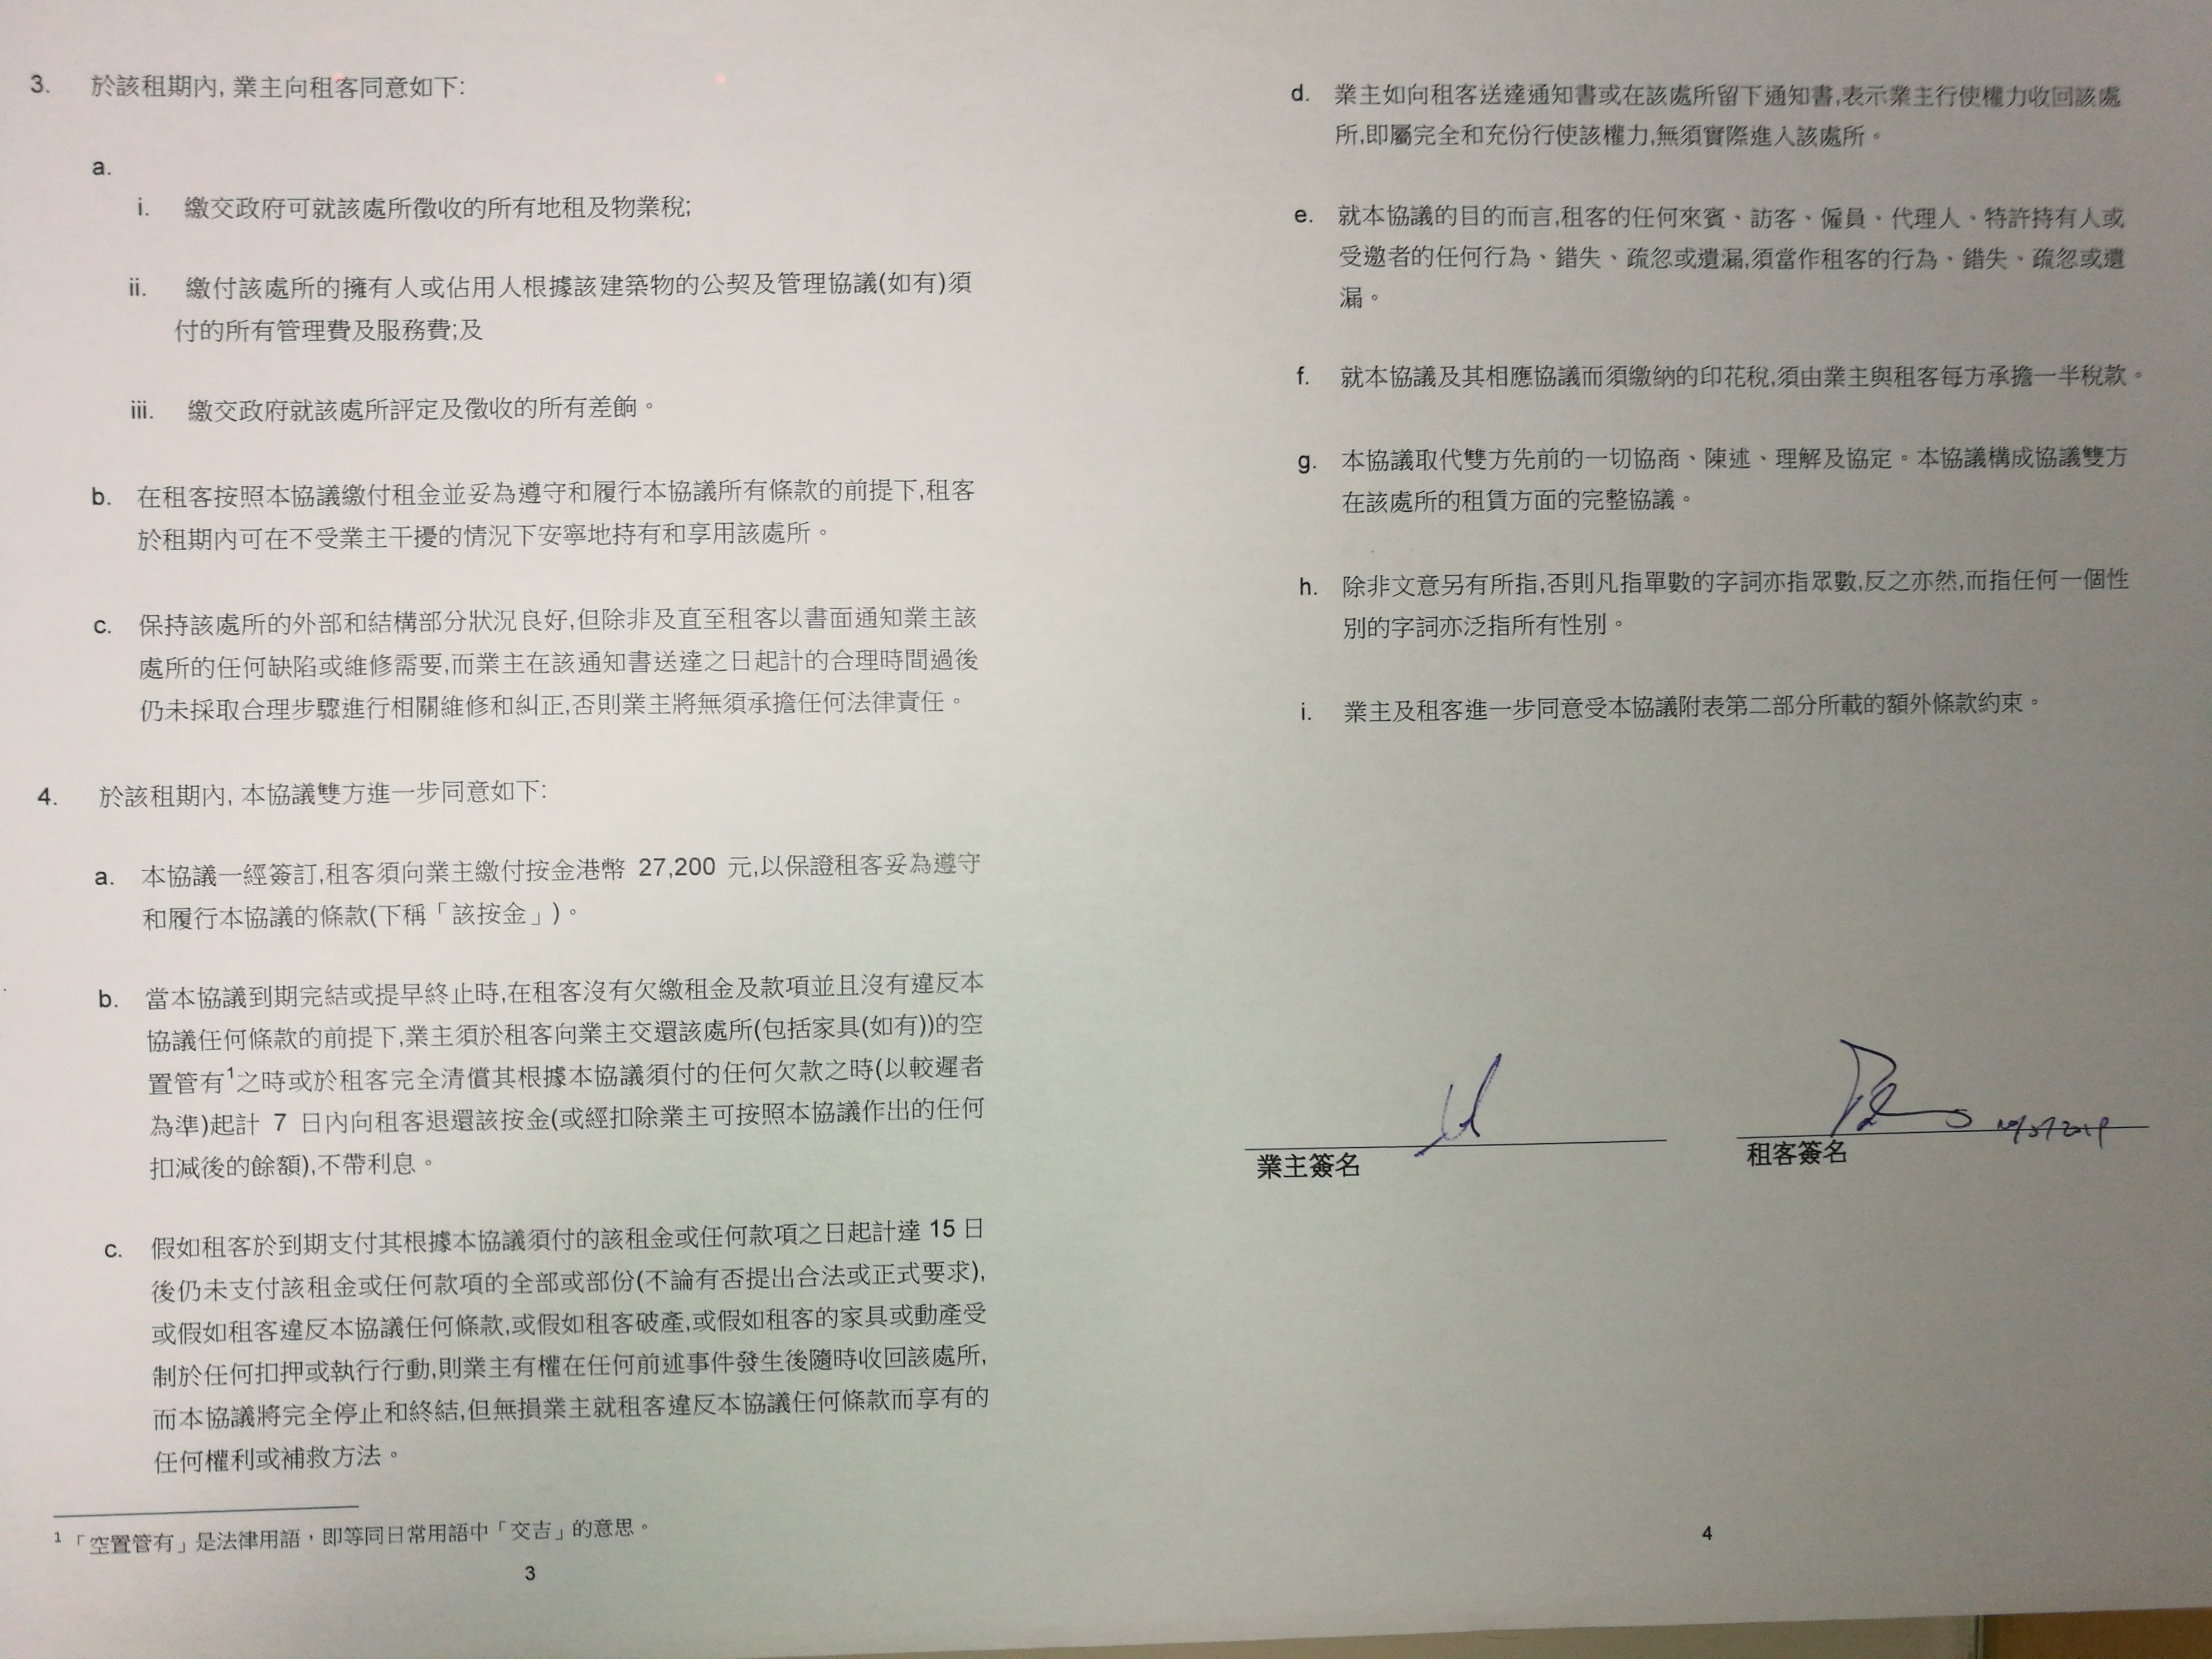 3. 於該租期內, 業主向租客同意如下:
a.
i. 繳交政府可就該處所徵收的所有地租及物業稅;
ii. 繳付該處所的擁有人或佔用人根據該建築物的公契及管理協議(如有)須
付的所有管理費及服務費;及
iii. 繳交政府就該處所評定及徵收的所有差餉。
b. 在租客按照本協議繳付租金並妥為遵守和履行本協議所有條款的前提下,租客
於租期內可在不受業主干擾的情況下安寧地持有和享用該處所。
c. 保持該處所的外部和結構部分狀況良好,但除非及直至租客以書面通知業主該
處所的任何缺陷或維修需要,而業主在該通知書送達之日起計的合理時間過後
仍未採取合理步驟進行相關維修和糾正,否則業主將無須承擔任何法律責任。
4. 於該租期內, 本協議雙方進一步同意如下:
a. 本協議一經簽訂,租客須向業主繳付按金港幣 27,200 元,以保證租客妥為遵守
和履行本協議的條款(下稱「該按金」)。
b. 當本協議到期完結或提早終止時,在租客沒有欠繳租金及款項並且沒有違反本
協議任何條款的前提下,業主須於租客向業主交還該處所(包括家具(如有))的空
置管有¹之時或於租客完全清償其根據本協議須付的任何欠款之時(以較遲者
為準)起計 7 日內向租客退還該按金(或經扣除業主可按照本協議作出的任何
扣減後的餘額),不帶利息。
c. 假如租客於到期支付其根據本協議須付的該租金或任何款項之日起計達 15 日
後仍未支付該租金或任何款項的全部或部份(不論有否提出合法或正式要求),
或假如租客違反本協議任何條款,或假如租客破產,或假如租客的家具或動產受
制於任何扣押或執行行動,則業主有權在任何前述事件發生後隨時收回該處所,
而本協議將完全停止和終結,但無損業主就租客違反本協議任何條款而享有的
任何權利或補救方法。
¹「空置管有」是法律用語，即等同日常用語中「交吉」的意思。
3
d. 業主如向租客送達通知書或在該處所留下通知書,表示業主行使權力收回該處
所,即屬完全和充份行使該權力,無須實際進入該處所。
e. 就本協議的目的而言,租客的任何來賓、訪客、僱員、代理人、特許持有人或
受邀者的任何行為、錯失、疏忽或遺漏,須當作租客的行為、錯失、疏忽或遺
漏。
f. 就本協議及其相應協議而須繳納的印花稅,須由業主與租客每方承擔一半稅款。
g. 本協議取代雙方先前的一切協商、陳述、理解及協定。本協議構成協議雙方
在該處所的租賃方面的完整協議。
h. 除非文意另有所指,否則凡指單數的字詞亦指眾數,反之亦然,而指任何一個性
別的字詞亦泛指所有性別。
i. 業主及租客進一步同意受本協議附表第二部分所載的額外條款約束。
業主簽名
租客簽名
4